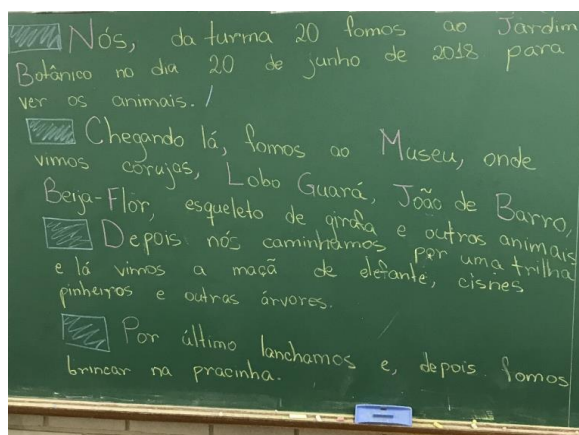 Nós, da turma 20 fomos ao Jardim
Botânico no dia 20 de junho de 2018 para
ver os animais.
Chegando lá, fomos ao Museu, onde
vimos corujas, Lobo Guará, João de Barro,
Beija-Flor, esqueleto de girafa e outros animais
Depois nós caminhamos por uma trilha
e lá vimos a maçã de elefante, cisnes
pinheiros e outras árvores.
Por último lanchamos e, depois fomos
brincar na pracinha.